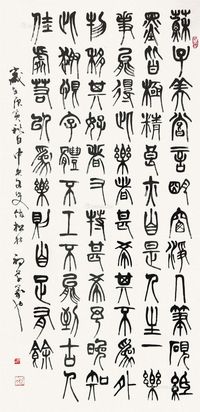 蘇子美嘗言明窗淨几筆硯紙
墨皆極精良亦自是人生一樂
然能得此樂者甚希其不為外
物移其好者又特希也余晚知
此趣恨字體不工不能到古人
佳處若以為樂則自足有餘
歲在庚寅秋日